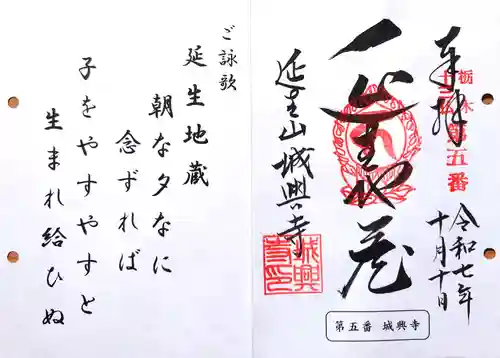 奉拝
栃木十三佛第五番
令和七年
十月十日
延生地蔵
延生山城興寺
城興寺印
第五番 城興寺
ご詠歌
延生地蔵
朝な夕なに
念ずれば
子をやすやすと
生まれ給ひぬ